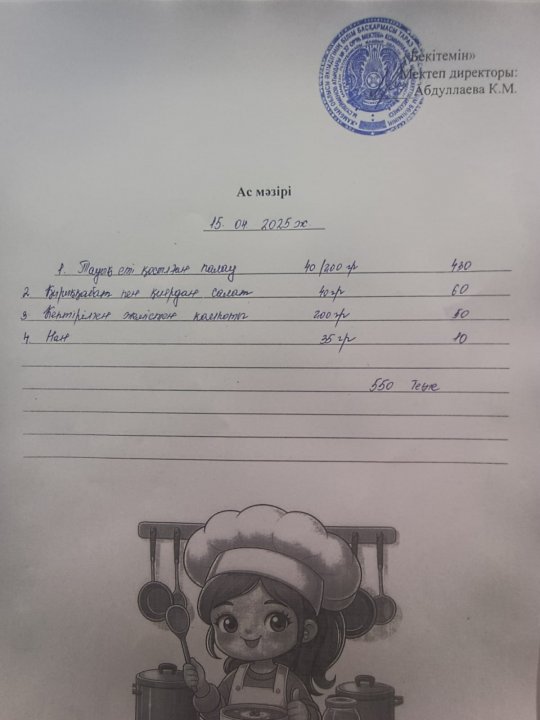 «Бекітемін»
Мектеп директоры:
Абдуллаева К.М.
Ас мәзірі
15. 04 2025 ж.
1. Тауық еті қосылған палау 40/200 гр 430
2 Қырыққабат пен қиярдан салат 40гр 60
3 Кептірілген жемістен компоты 200гр 50
4 Нан 35 гр 10
550 Теңге